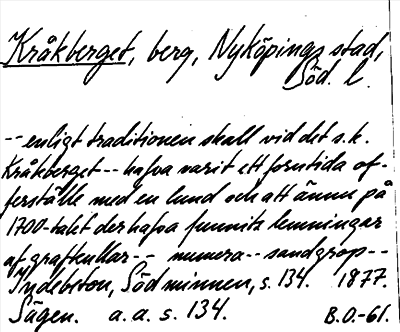 Kråkberget, berg, Nyköpings stad,
Söd. l.
-- enligt traditionen skall vid det s.k.
Kråkberget -- hafva varit ett forntida of-
ferställe med en lund och att ännu på
1700-talet der hafva funnitz lemningar
af grafkullar -- numera -- sandgrop --
Indebetou, Södminnen, s. 134. 1877.
Sägen. a.a. s. 134. B.O.-61.